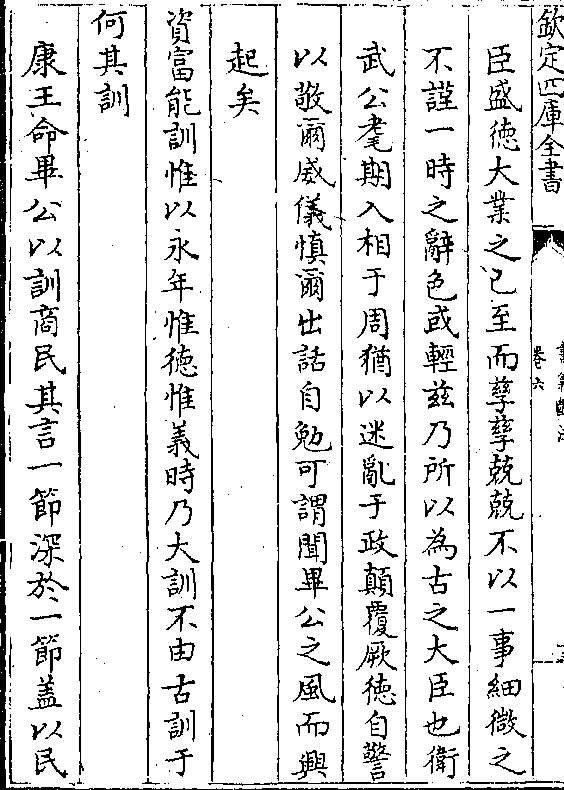 欽定四庫全書
卷六
臣盛德大業之已至而孳孳兢兢不以一事細微之
不謹一時之辭色或輕茲乃所以為古之大臣也衛
武公耄期入相于周猶以迷亂于政顛覆厥德自警
以敬爾威儀慎爾出話自勉可謂聞畢公之風而興
起矣
資富能訓惟以永年惟德惟義時乃大訓不由古訓于
何其訓
康王命畢公以訓商民其言一節深於一節蓋以民